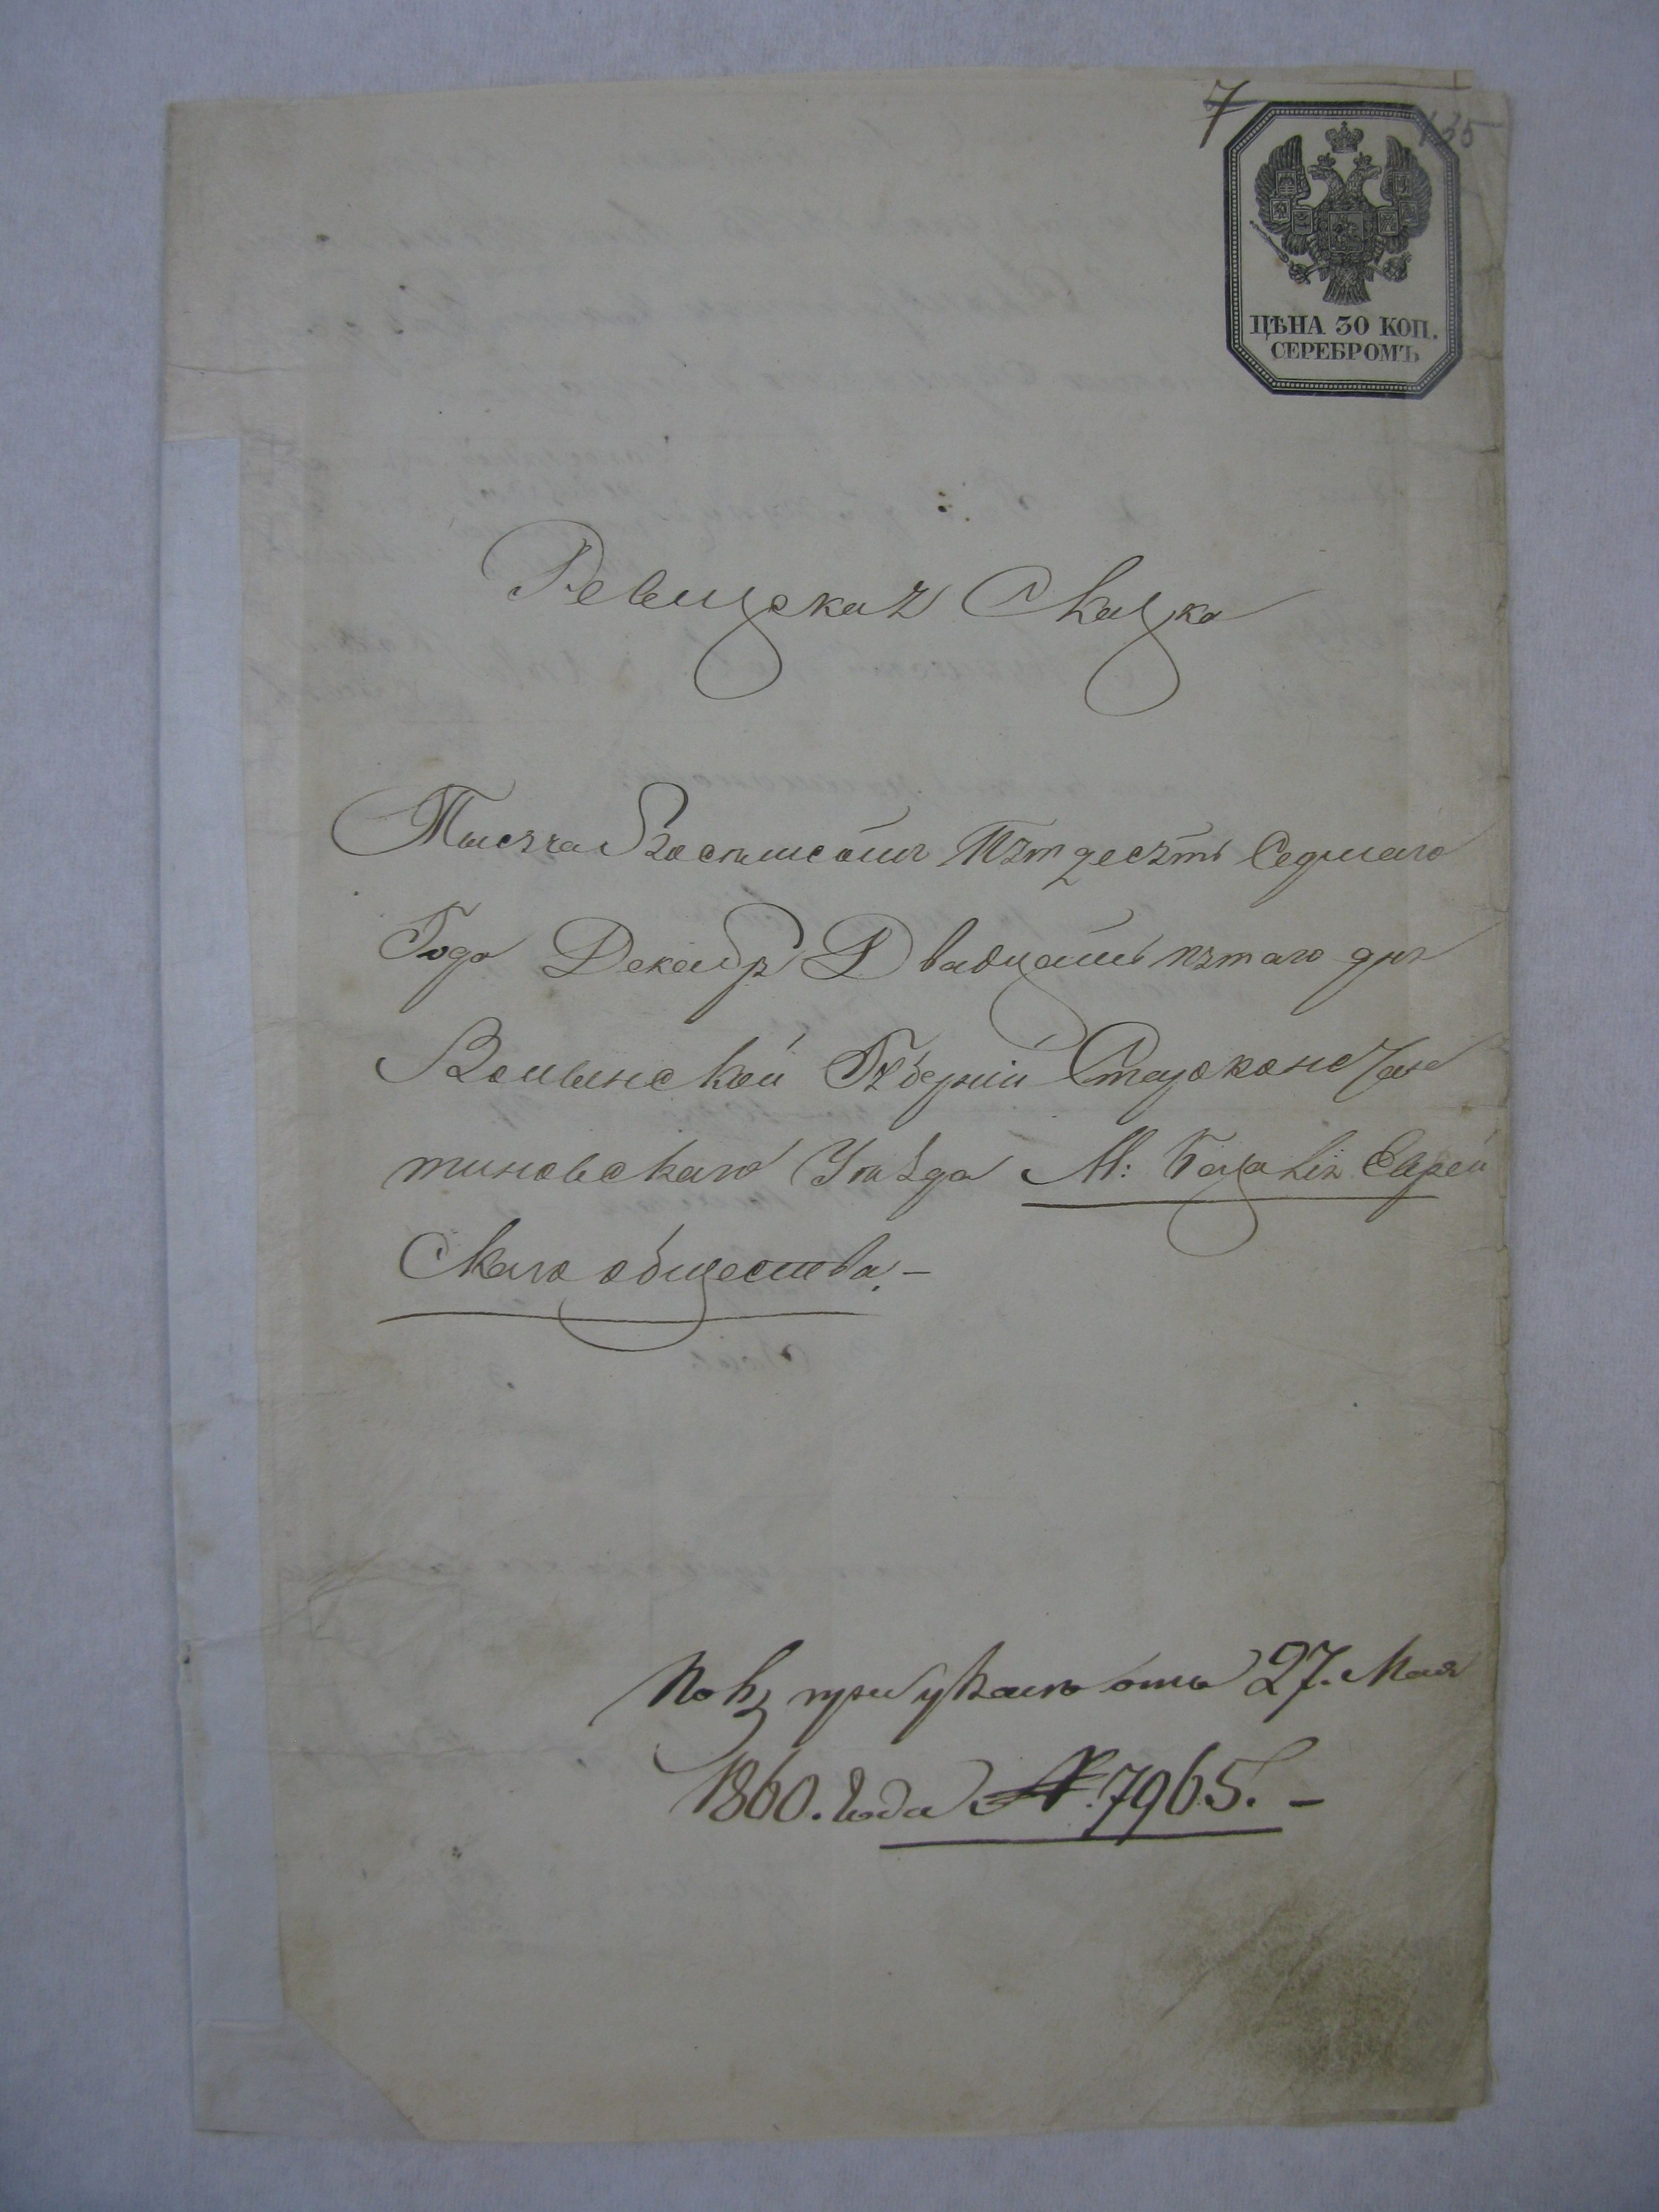 7
135
ЦѢНА 30 КОП.
СЕРЕБРОМЪ
Ревизская Сказка
Тысяча Восемьсотъ Пятдесятъ Седмаго
Года Декабря Двадцать пятаго дня
Волынской Губерніи Староконстан
тиновскаго Уѣзда М: Базаліи Еврей
Скаго общества.-
при указѣ отъ 27. Мая
1860. года №. 7965. -